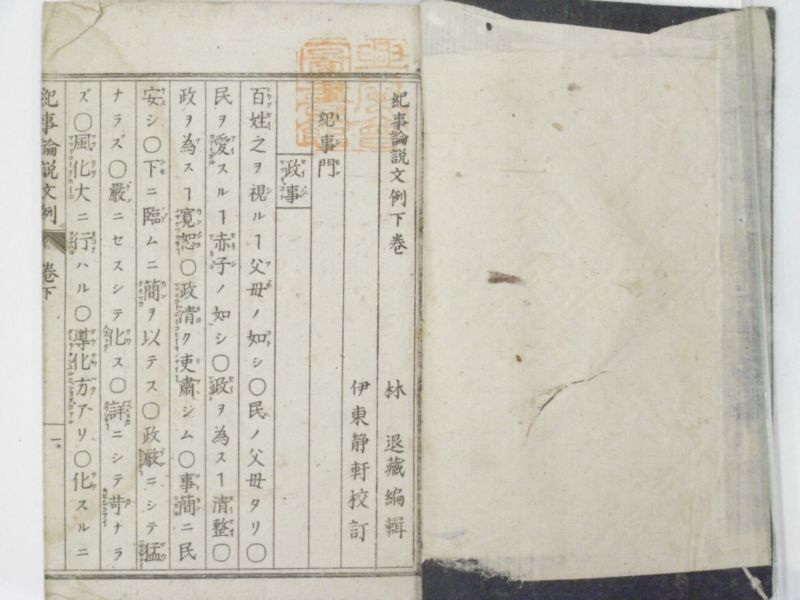 紀事論説文例下卷
林 退藏編輯
伊東静軒校訂
紀事門
政事
百姓之ヲ視ルヿ父母ノ如シ〇民ノ父母タリ〇
民ヲ愛スルヿ赤子ノ如シ〇政ヲ為スヿ清整〇
政ヲ為スヿ寛恕〇政清ク吏肅シム〇事簡ニ民
安シ〇下ニ臨ムニ簡ヲ以テス〇政厳ニシテ猛
ナラズ〇嚴ニセスシテ化ス〇詳ニシテ苛ナラ
ズ〇風化大ニ行ハル〇導化方アリ〇化スルニ
紀事論説文例
卷下
一